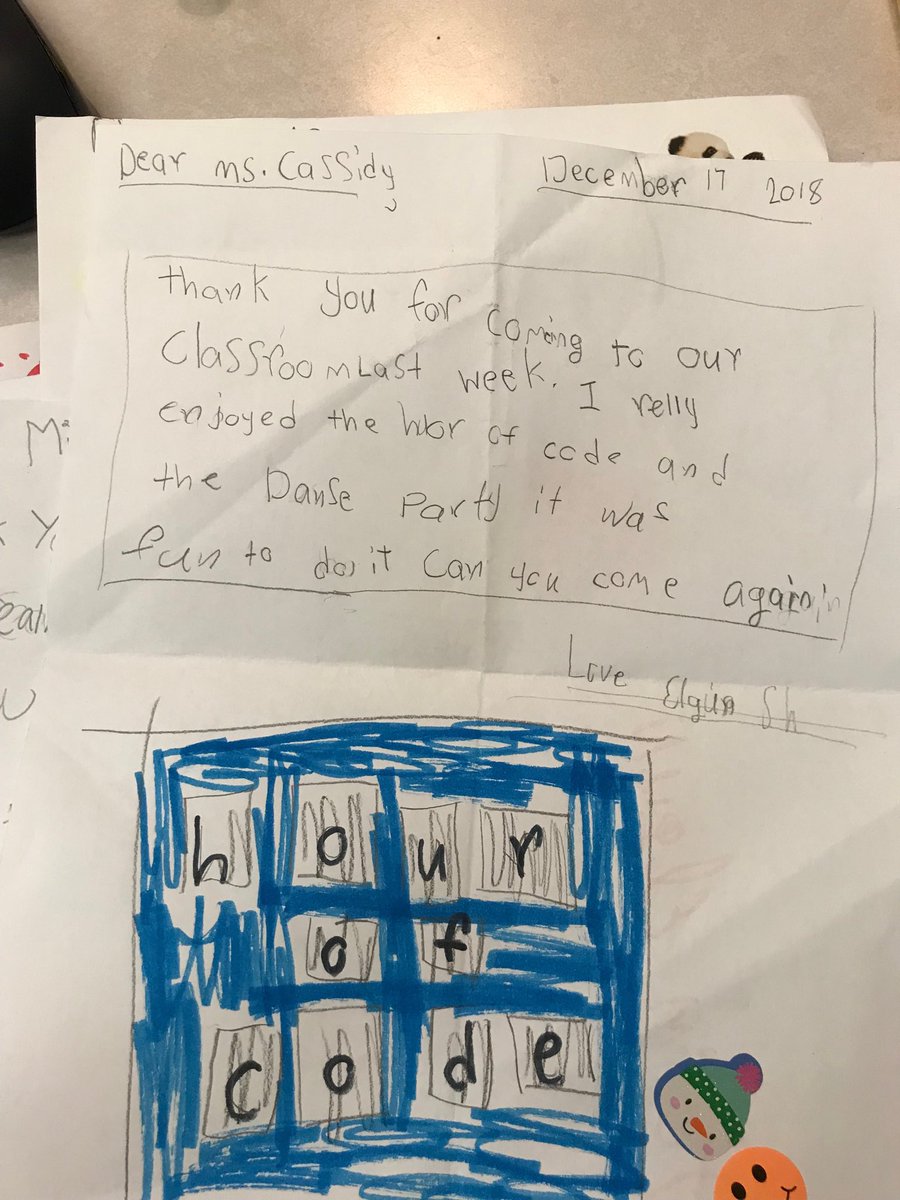 Dear ms. Cassidy, December 17 2018
thank you for coming to our
Classroom Last week. I relly
enjoyed the hour of code and
the Danse Party it was
fun to do it Can you come again
Love Elgün Sh
hour
of
code
Mi
Y
ean